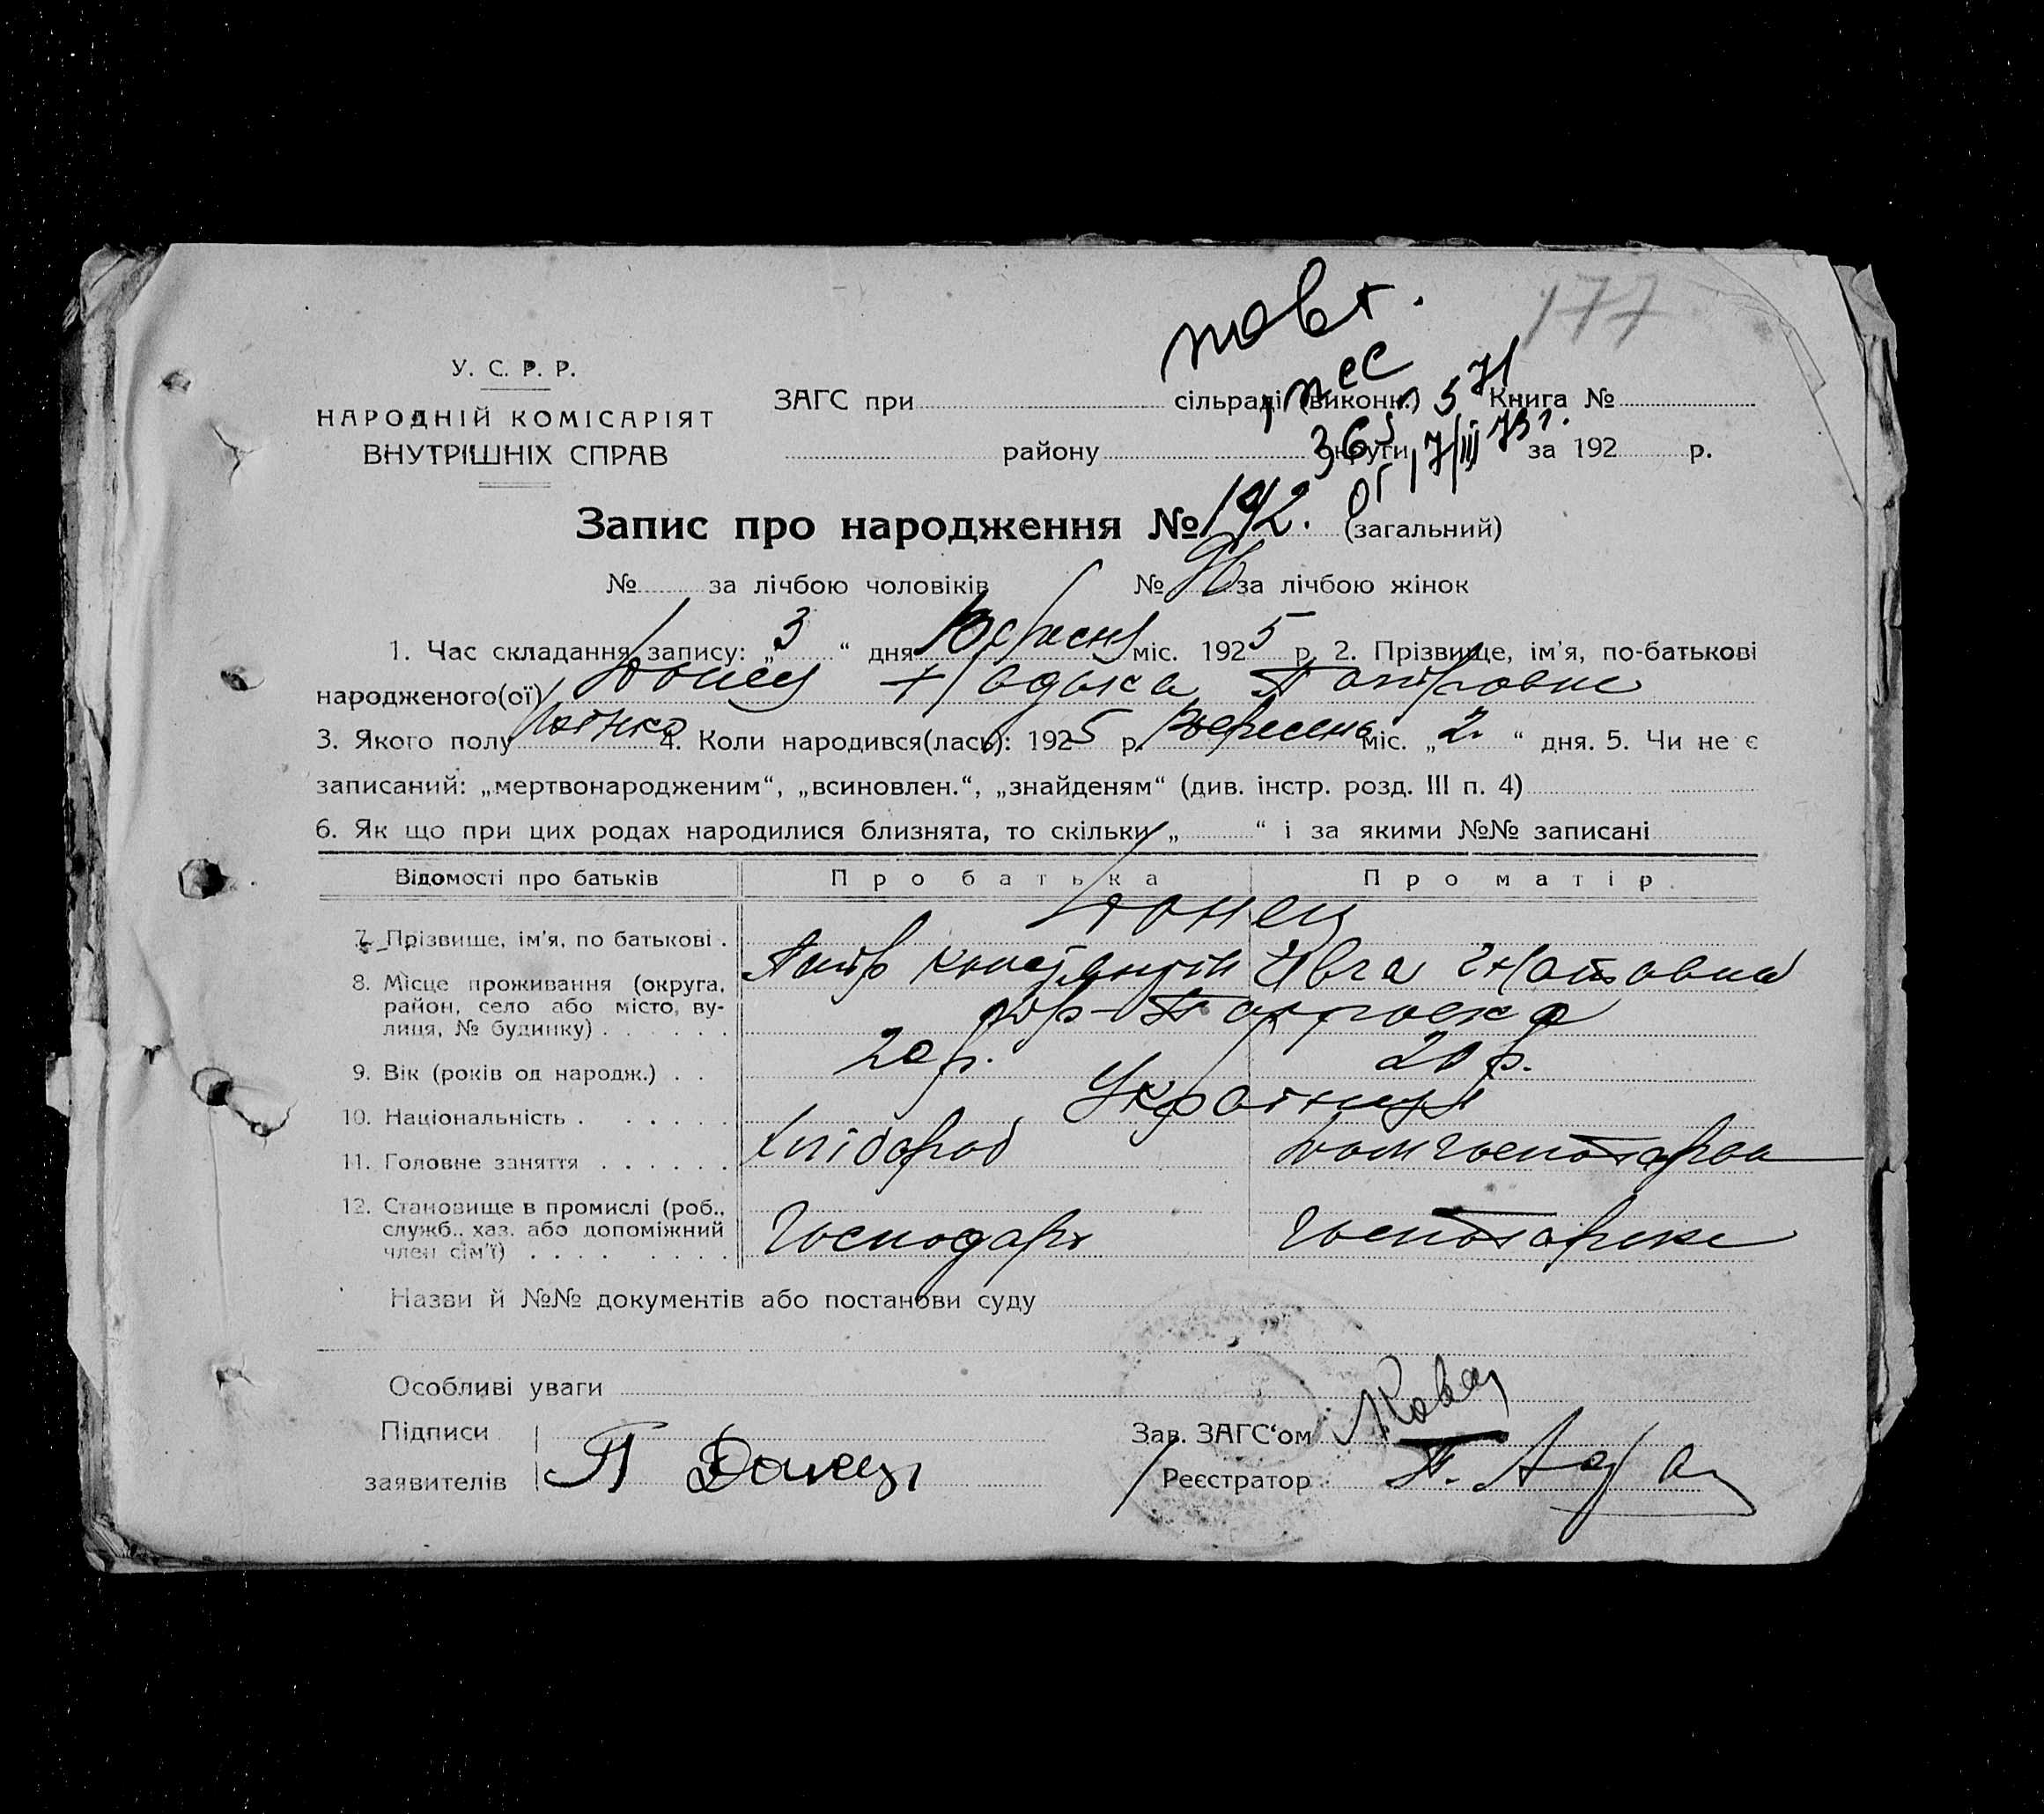 177
повт.
У. С. Р. Р.
НАРОДНІЙ КОМІСАРІЯТ
ВНУТРІШНІХ СПРАВ
ЗАГС при сільраді (виконк.) Книга №
району округи за 192 р.
от 17/III 73 г.
Запис про народження № 192. (загальний)
№ за лічбою чоловіків № 96 за лічбою жінок
1. Час складання запису: „3“ дня Вересня міс. 1925 р. 2. Прізвище, ім'я, по-батькові
народженого(ої) Донец Надька Петровна
3. Якого полу 4. Коли народився(лась): 1925 р. Вересень міс. „2.“ дня. 5. Чи не є
записаний: „мертвонародженим“, „всиновлен.“, „знайденям“ (див. інстр. розд. III п. 4)
6. Як що при цих родах народилися близнята, то скільки „ “ і за якими №№ записані
Відомості про батьків Про батька Про матір
Донец
7. Прізвище, ім'я, по батькові . Петр Ивга
8. Місце проживання (округа,
район, село або місто, ву-
лиця, № будинку) . . . . .
9. Вік (років од народж.) . . 20 р. 20 р.
10. Національність . . . . . . Українці
11. Головне заняття . . . . . . Хлібороб домгосподарка
12. Становище в промислі (роб.,
служб., хаз. або допоміжний
член сім'ї) . . . . . . . . Господарь господарка
Назви й №№ документів або постанови суду
Особливі уваги
Підписи
заявителів П Донец
Зав. ЗАГС‘ом
Реєстратор П.